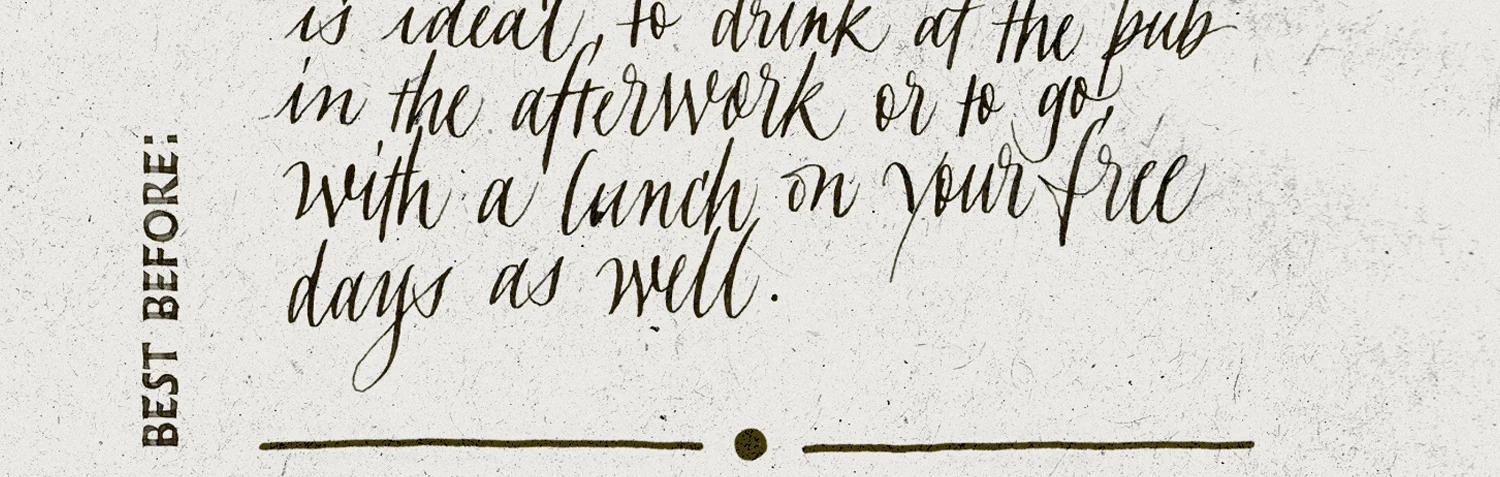 is ideal, to drink at the pub
in the afterwork or to go,
with a lunch on your free
days as well.
BEST BEFORE: